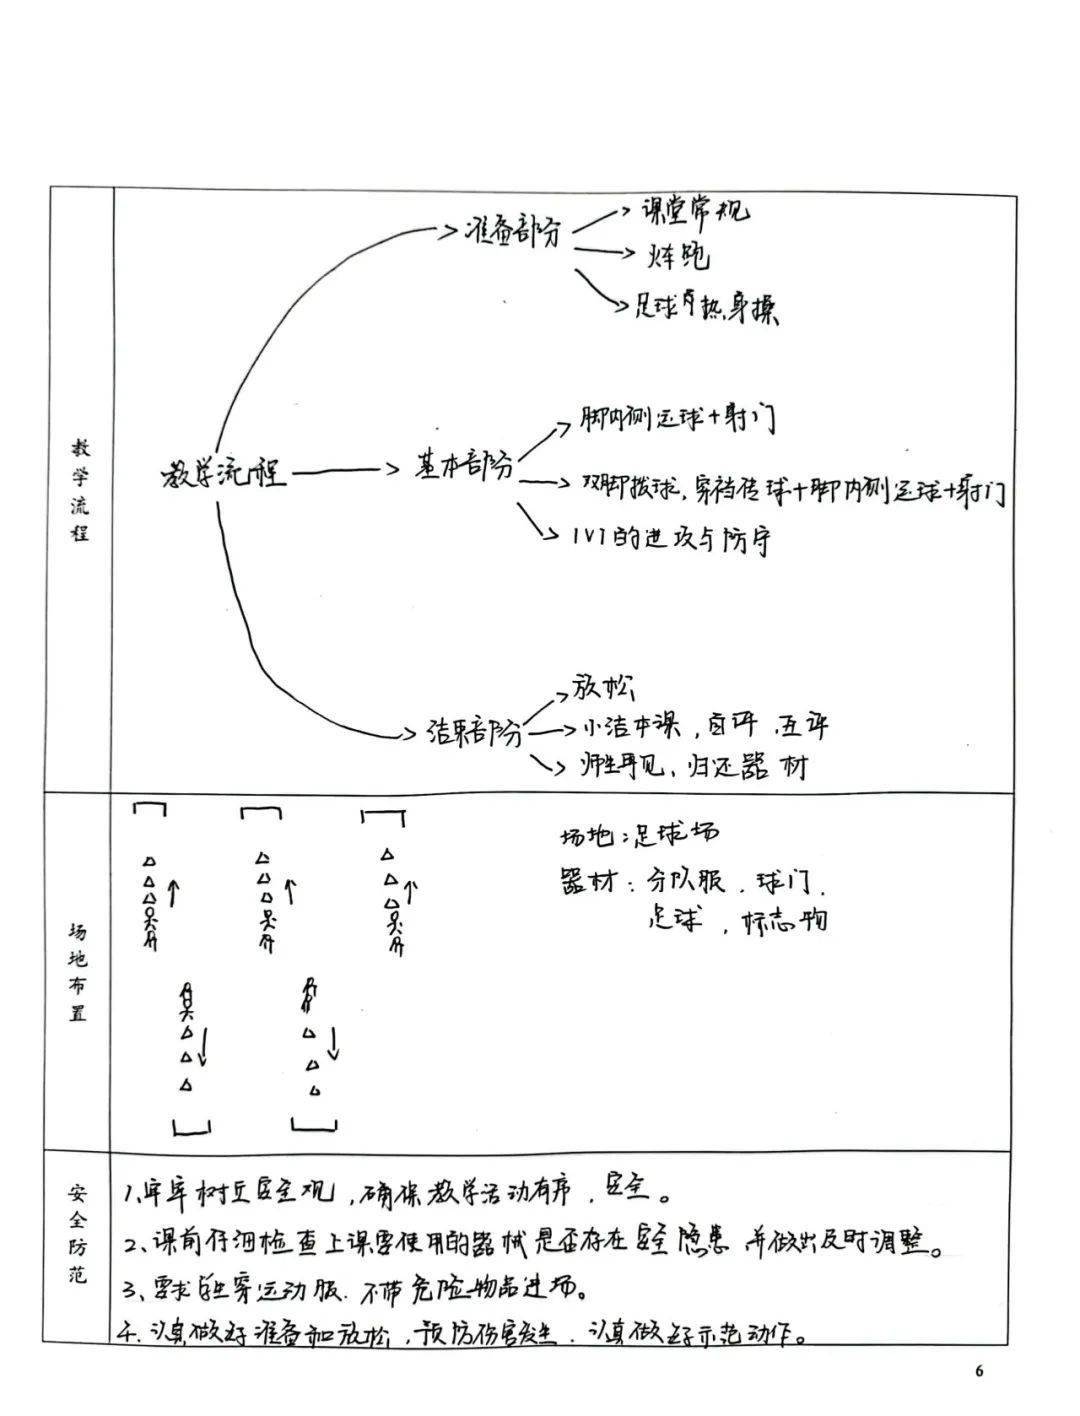 教学流程
准备部分
课堂常规
炼跑
足球热身操
教学流程
基本部分
脚内侧运球+射门
双脚拨球,穿裆传球+脚内侧运球+射门
1V1的进攻与防守
结果部分
放松
小洁本课,自评,互评
师生再见、归还器材
场地布置
场地:足球场
器材:分队服、球门、
足球,标志物
安全防范
1、牢牢树立安全观,确保教学活动有序、安全。
2、课前仔细检查上课要使用的器械是否存在安全隐患 并做出及时调整。
3、要求学生穿运动服.不带危险物品进场。
4.认真做好准备和放松,预防伤害发生.认真做好示范动作。
6